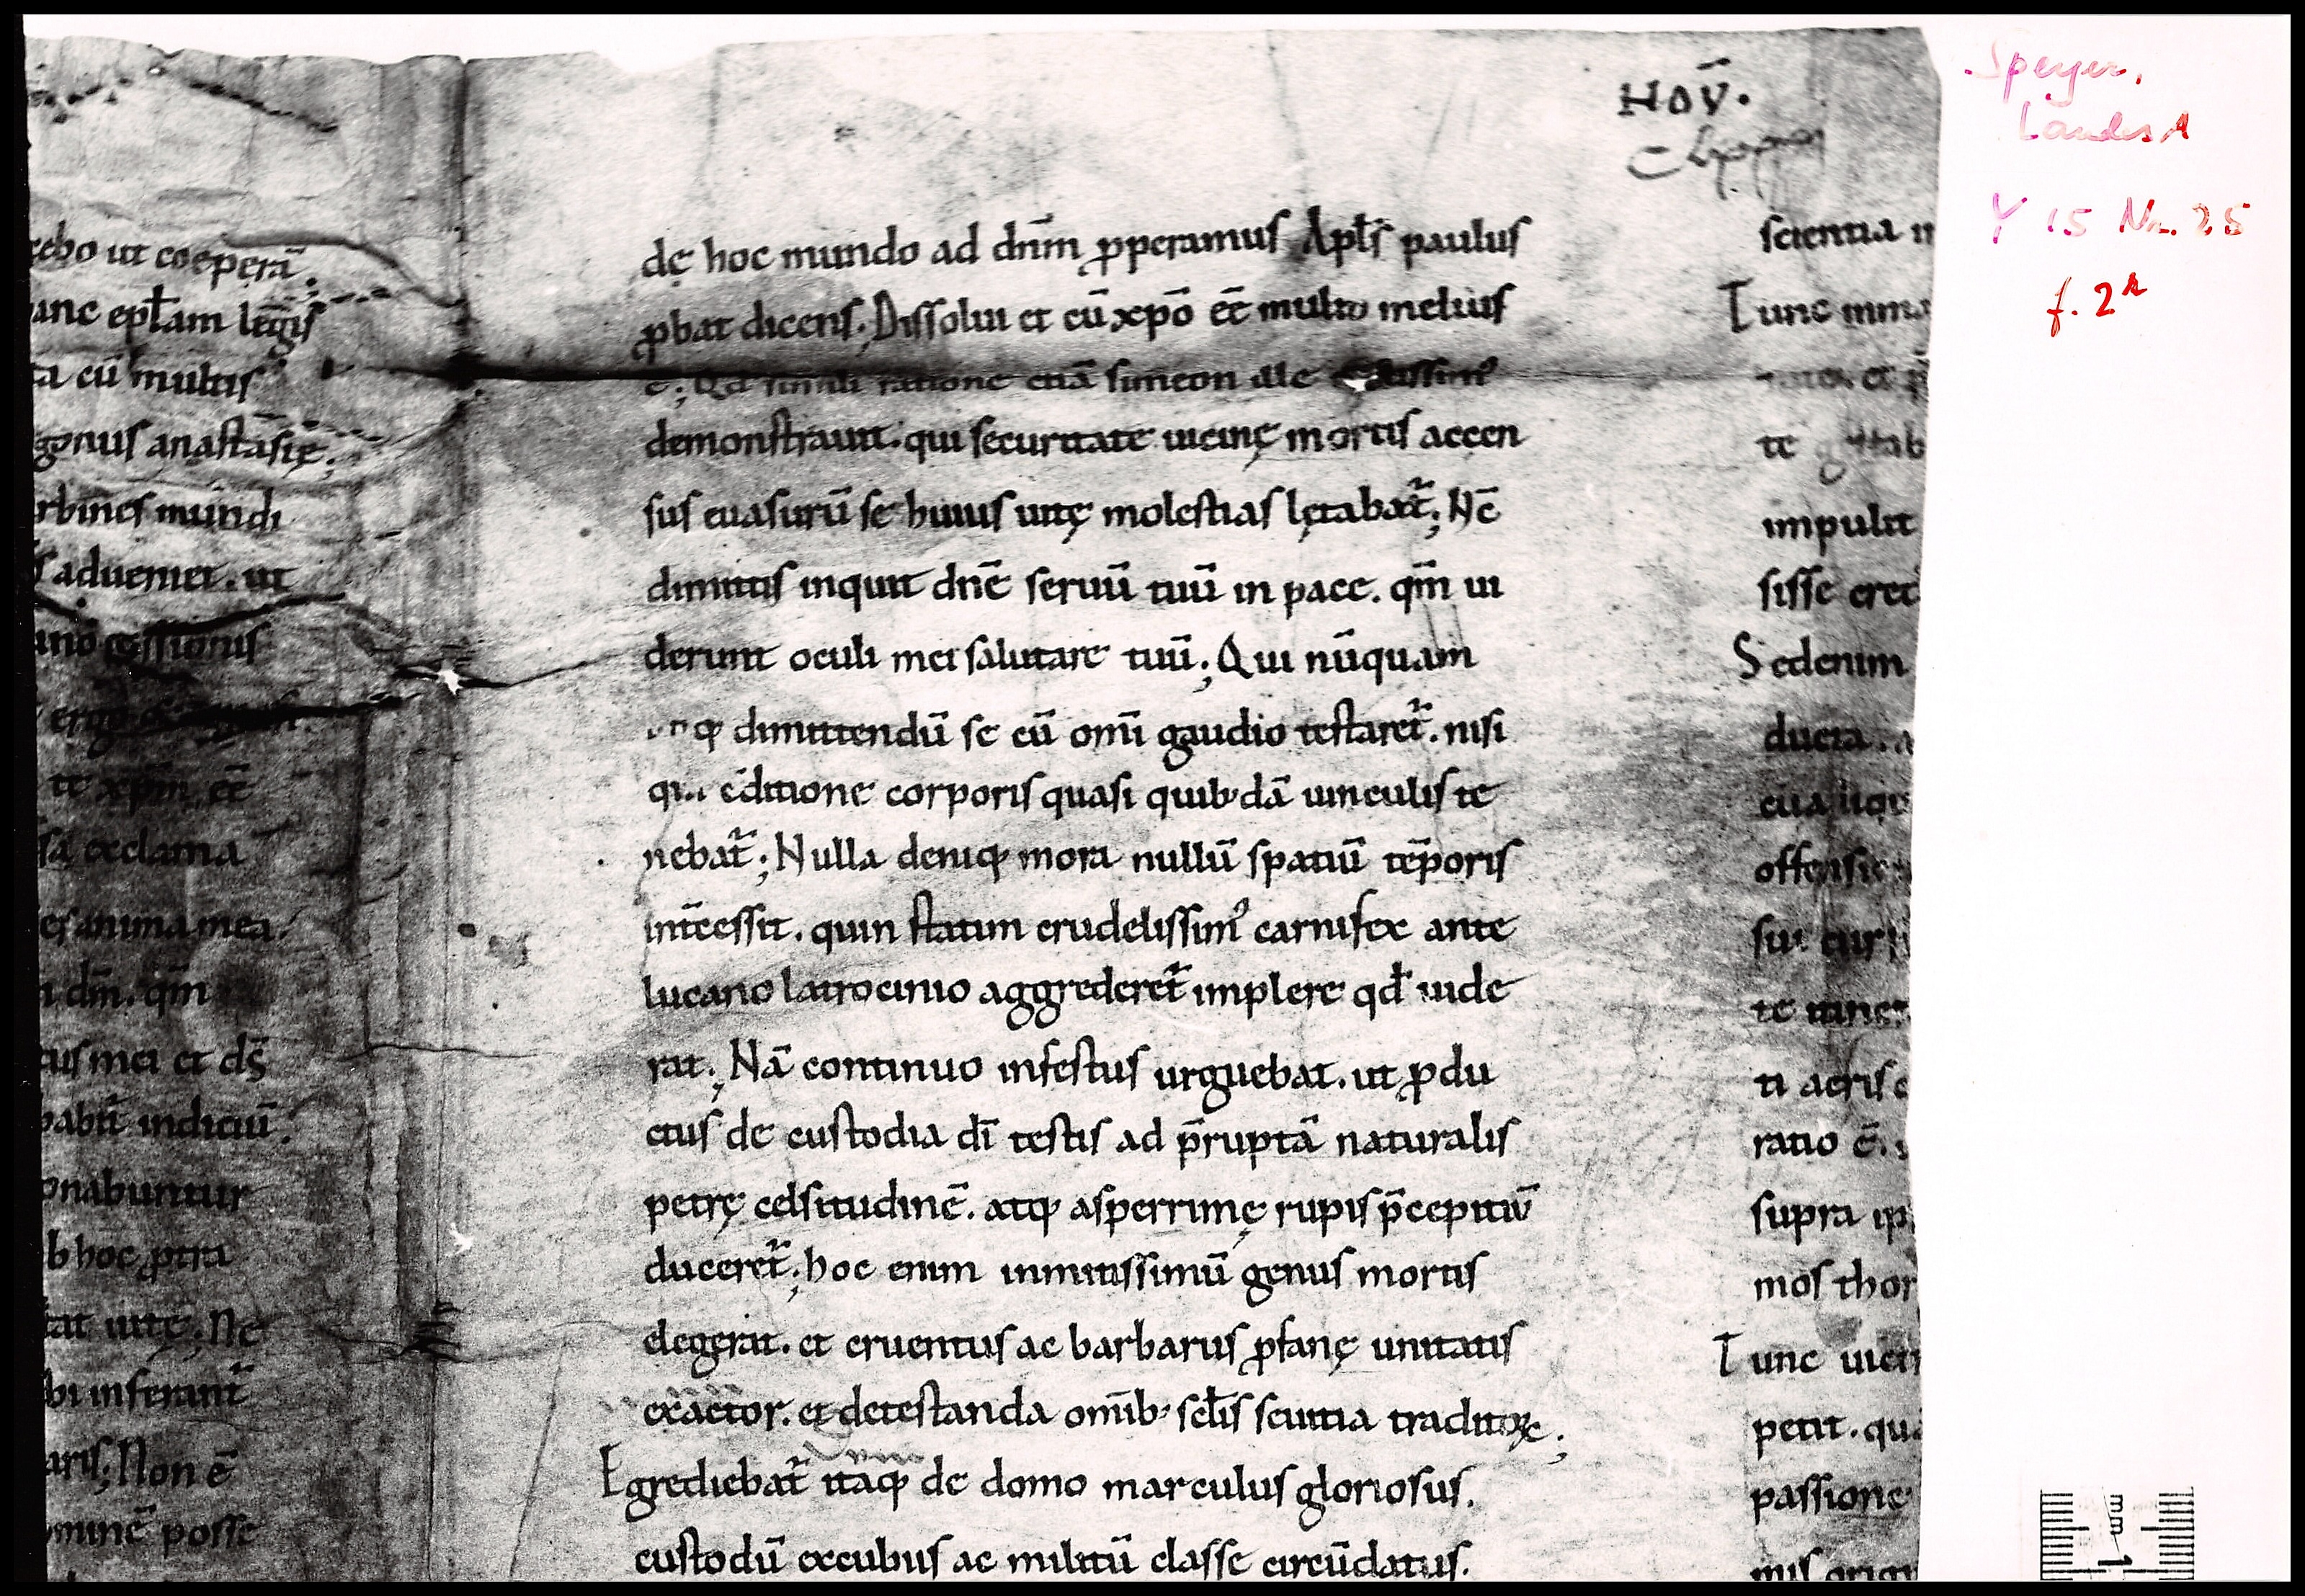 Hov̄.
cebo ut coeperā.
anc epl̄am leḡis
ta cū multis
gonus anastasię.
rbines mundi
s aduemei. ut
ano cessionis
te xp̄m eē
sa exclama
es anima mea.
n dm̄. qm̄
tus mei et ds̄
babit̄ indiciū.
onabuntur
b hoc ꝓtra
tat uitę. Ne
bi inferant̄
aris; Non ē
minē posse
dę hoc mundo ad dnm̄ ꝓperamus Apls̄ paulus
ꝓbat dicens; Dissolui et cū xpō eē multo melius
ē; Qd simili ratione etiā simeon ille
demonstrauit. qui securitate uicinę mortis accen
sus euasurū se huius uitę molestias lętabat̄; Nē
dimittis inquit dnē seruū tuū in pace. qm̄ ui
derunt oculi mei salutare tuū; Qui nūquam
dimittendū se cū omī gaudio testaret̄. nisi
cditione corporis quasi quibdā uinculis te
nebat̄; Nulla deniqꝫ mora nullū spatiū tēporis
int̄cessit. quin statim crudelissimꝰ carnifex ante
lucano latrocinio aggrederet̄ implere qd̄ uide
rat; Nā continuo infestus urguebat. ut ꝓdu
ctus de custodia dī testis ad p̄ruptā naturalis
petrę celsitudinē. atqꝫ asperrimę rupis p̄cepitiū
duceret̄; hoc enim inmitissimū genus mortis
elegerat. et cruentus ac barbarus ꝓfanę unitatis
exactor. et detestanda omib; scl̄is scuitia traditoꝝ;
Egrediebat̄ itaqꝫ de domo marculus gloriosus.
custodū excubiis ac militū classe circūdatus.
scientia
Tunc
te
impulit
sisse cred
Sedenim
ducta.
te
ti aeris
ratio ē.
supra ip
mos thor
Tunc
petit. qu
passione
Speyer,
LandesA
Y 15 Nr. 25
f. 2r
mm
1